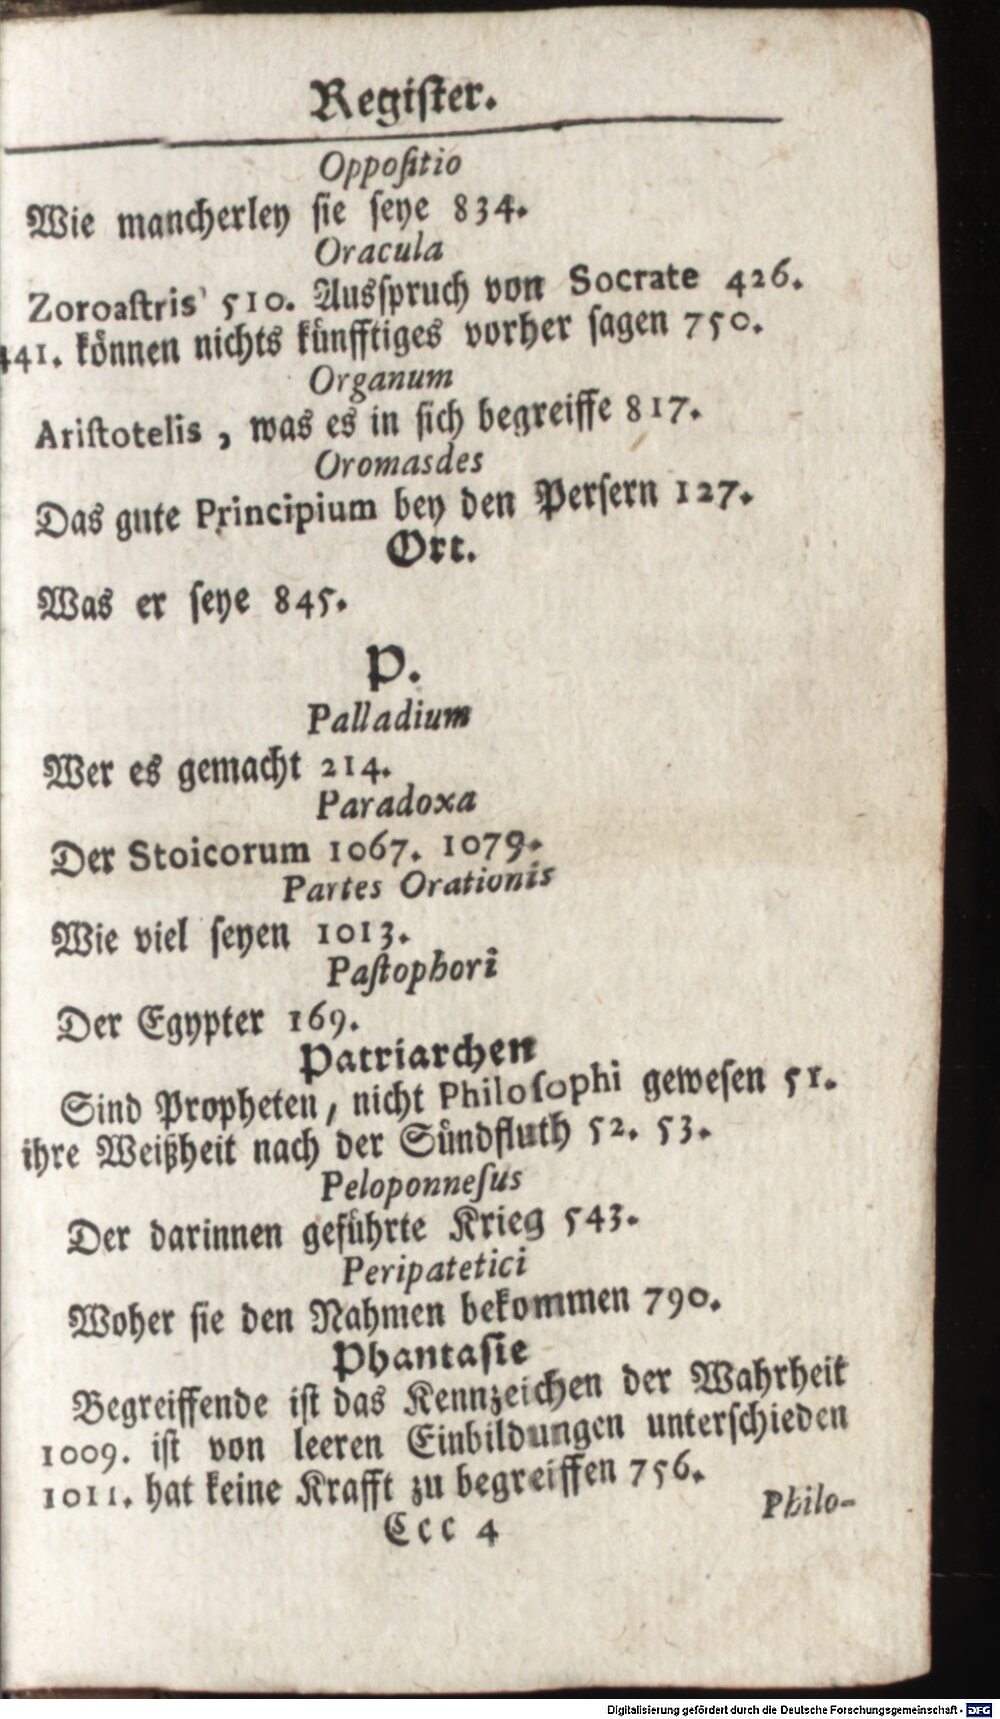 Register.
Oppositio
Wie mancherley sie seye 834.
Oracula
Zoroastris 510. Ausspruch von Socrate 426.
441. können nichts künfftiges vorher sagen 750.
Organum
Aristotelis, was es in sich begreiffe 817.
Oromasdes
Das gute Principium bey den Persern 127.
Ort.
Was er seye 845.
P.
Palladium
Wer es gemacht 214.
Paradoxa
Der Stoicorum 1067. 1079.
Partes Orationis
Wie viel seyen 1013.
Pastophori
Der Egypter 169.
Patriarchen
Sind Propheten, nicht Philosophi gewesen 51.
ihre Weißheit nach der Sündfluth 52. 53.
Peloponnesus
Der darinnen geführte Krieg 543.
Peripatetici
Woher sie den Nahmen bekommen 790.
Phantasie
Begreiffende ist das Kennzeichen der Wahrheit
1009. ist von leeren Einbildungen unterschieden
1011. hat keine Krafft zu begreiffen 756.
Ccc 4
Philo-
Digitalisierung gefördert durch die Deutsche Forschungsgemeinschaft - DFG